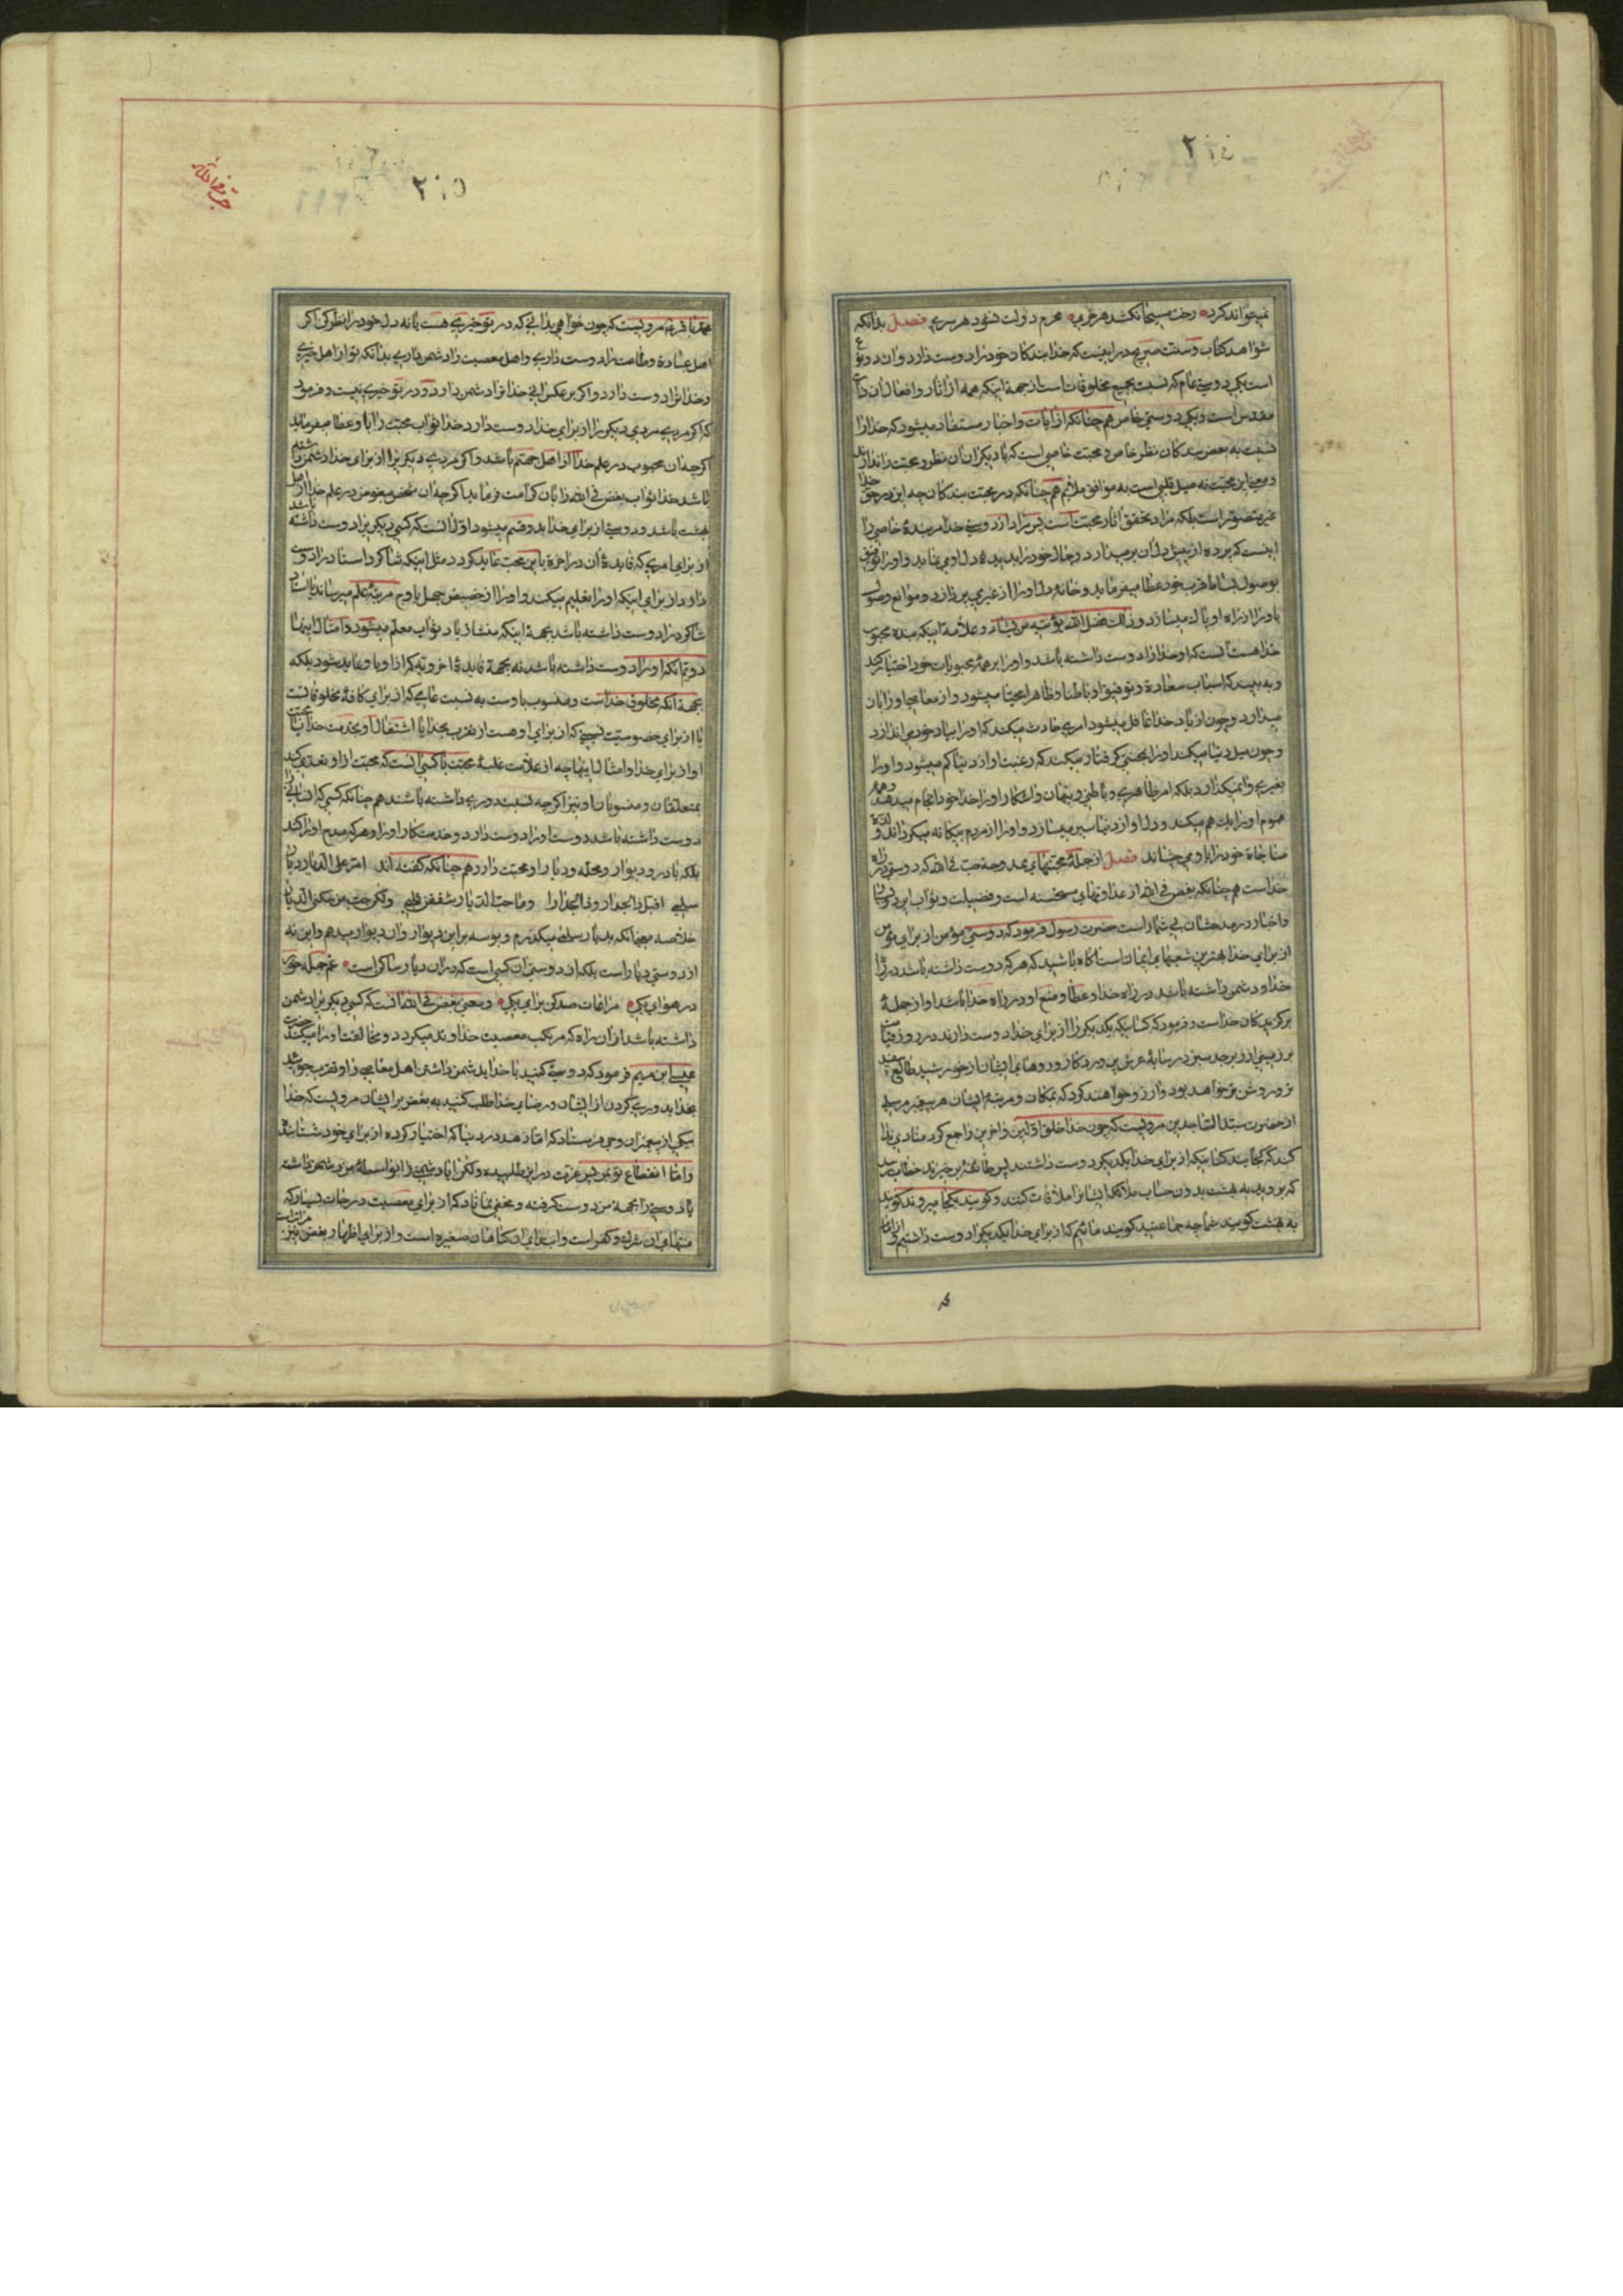 نمیتواند کرد رخت مسیحا نکشد هر خری محرم دولت نشود هر سری فصل بدانکه
شواهد کتاب و سنت صریح در اینست که خدا بندگان خود را دوست دارد و آن دو نوع
است یکی دوستی عام که نسبت بجمیع مخلوقات است از جهة اینکه همه از آثار و افعال آن ذات
مقدس است و یکی دوستی خاص هم چنانکه از آیات و اخبار مستفاد میشود که خدا را
نسبت به بعضی بندگان نظر خاص و محبت خاصی است که با دیگران آن نظر و محبت را ندارد
و معنی این محبت نه میل قلبی است به موافق ملایم هم چنانکه در محبت بندگان چه این در حق خدا
غیر متصور است بلکه مراد تحقق آثار محبت است پس مراد از دوستی خدا مر بنده خاصی را
اینست که پرده از پیش دل آن برمیدارد و جمال خود را بدیده دل او می نماید و او را توفیق
بوصول بساط قرب خود عطا میفرماید و خانه دل او را از غیر می پردازد و موانع وصول
باو را از راه او پاک میسازد و ذلک فضل الله یؤتیه من یشاء و علامة اینکه بنده محبوب
خدا هست آنست که او خدا را دوست داشته باشد و او را بر همه محبوبات خود اختیار کند
و به بیند که اسباب سعادة و توفیق او باطنا و ظاهرا مهیا میشود و از معاصی او را باز
میدارد و چون از یاد خدا غافل میشود امری حادث میکند که او را بیاد خود می اندازد
و چون میل دنیا میکند او را بمحنتی گرفتار میکند که رغبت او از دنیا کم میشود و او را
بغیری وانمیگذارد بلکه امر ظاهری و باطنی و پنهان و آشکار او را خدا خود انجام میدهد و همه
هموم او را یک هم میکند و دل او از دنیا سیر میسازد و او را از مردم بیگانه میگرداند و لذة
مناجاة خود را باو می چشاند فصل از جمله محبتهای ممدوحه حب فی الله که دوستی در راه
خداست هم چنانکه بغض فی الله از عداوتهای مستحسنه است و فضیلت و ثواب این دو
و اخبار در مدحشان بی شمار است حضرت رسول فرمود که دوستی مؤمن از برای مؤمن
از برای خدا بهترین شعبهای ایمان است آگاه باشید که هر که دوست داشته باشد در راه
خدا و دشمن داشته باشد در راه خدا و عطا و منع او در راه خدا باشد او از جمله
برگزیدگان خداست و فرمود که کسانیکه یکدیگر را از برای خدا دوست دارند در روز قیامت
بر زمینی از زبرجد سبز در سایه عرش پروردگارند و روهای ایشان از خورشید طالع سفید
تر و روشن تر خواهد بود و آرزو خواهند کرد که بمکان و مرتبه ایشان هر پیغمبر مرسلی
از حضرت سید الساجدین مرویست که چون خدا خلق اولین و آخرین را جمع کرد منادی ندا
کند که کجایند کسانیکه از برای خدا یکدیگر دوست داشتند پس طائفه برخیزند خطاب رسد
که بروید به بهشت بدون حساب ملائکه ایشانرا ملاقات کنند و گویند بکجا میروند گویند
به بهشت گویند شما چه جماعتید گویند مائیم که از برای خدا یکدیگر را دوست داشتیم و از امام
محمد باقر مرویست که چون خواهی بدانی که در تو خیری هست یا نه دل خود را نظر کن اگر
اهل عبادة و طاعت را دوست داری و اهل معصیت را دشمن داری بدانکه تو از اهل خیری
و خدا ترا دوست دارد و اگر بر عکس آنی خدا ترا دشمن دارد و در تو خیری نیست و فرمود
که اگر مردی مردی دیگر را از برای خدا دوست دارد خدا ثواب محبت را باو عطا میفرماید
اگر چه آن محبوب در علم خدا از اهل جهنم باشد و اگر مردی دیگری را از برای خدا دشمن داشته
باشد خدا ثواب بغض فی الله را بآن کرامت فرماید اگر چه آن شخص مبغوض در علم خدا از اهل
بهشت باشد و دوستی از برای خدا بدو قسم میشود اول آنست که کسی دیگری را دوست داشته باشد
از برای امری که فایده آن در آخرة باین محبت عاید گردد مثل اینکه شاگرد استاد را دوست
دارد از برای اینکه او را تعلیم میکند و او را از حضیض جهل باوج مرتبه علم میرساند یا استاد
شاگرد را دوست داشته باشد بجهة اینکه منشاء ازدیاد ثواب معلم میشود و امثال اینها
دوم آنکه او را دوست داشته باشد نه بجهة فایده اخرویه که از او باو عاید شود بلکه
بجهة آنکه مخلوق خداست و منسوب باوست به نسبت عامی که از برای کافه مخلوقانست
یا از برای خصوصیت نسبتی که از برای او هست از تقرب بخدا یا اشتغال او بخدمت خدا یا محبت
او از برای خدا و امثال اینها چه از علامت غلبه محبت با کسی آنست که محبت از او تعدی کند
بمتعلقان و منسوبان او نیز اگر چه نسبت دوری داشته باشند هم چنانکه کسی که انسانی را
دوست داشته باشد دوست او را دوست دارد و خدمتکار او را و هر که مدح او را کند
بلکه با در و دیوار و محله و دیار او محبت دارد هم چنانکه گفته اند امر علی الدیار دیار
سلمی اقبل ذا الجدار و ذا الجدارا و ما حب الدیار شغفن قلبی ولکن حب من سکن الدیارا
خلاصه معنی آنکه بدیار سلمی میگذرم و بوسه بر این دیوار و آن دیوار میدهم و این نه
از دوستی دیار است بلکه از دوستی آن کسی است که در آن دیار ساکن است غم جمله خور
در هوای یکی مراعات صد کن برای یکی و معنی بغض فی الله آنست که کسی دیگری را دشمن
داشته باشد از آن راه که مرتکب معصیت خداوند میگردد و مخالفت او را میکند حضرت
عیسی ابن مریم فرمود که دوستی کنید با خدا بدشمن داشتن اهل معاصی را و تقرب جوئید
بخدا بدوری کردن از ایشان و رضای خدا طلب کنید به بغض بر ایشان مرویست که خدا
بیکی از پیغمبران وحی فرستاد که اما زهد در دنیا که اختیار کرده از برای خود شتافته
و اما انقطاع تو بمن پس عزت در این طلبیده ولکن آیا دشمنی را بواسطه من دشمن داشته
یا دوستی را بجهة من دوست گرفته و مخفی نماناد که از برای معصیت درجات بسیار که
منتهای آن شرک و کفر است و ابتدای آن گناهان صغیره است و از برای اظهار بغض نیز مراتب است